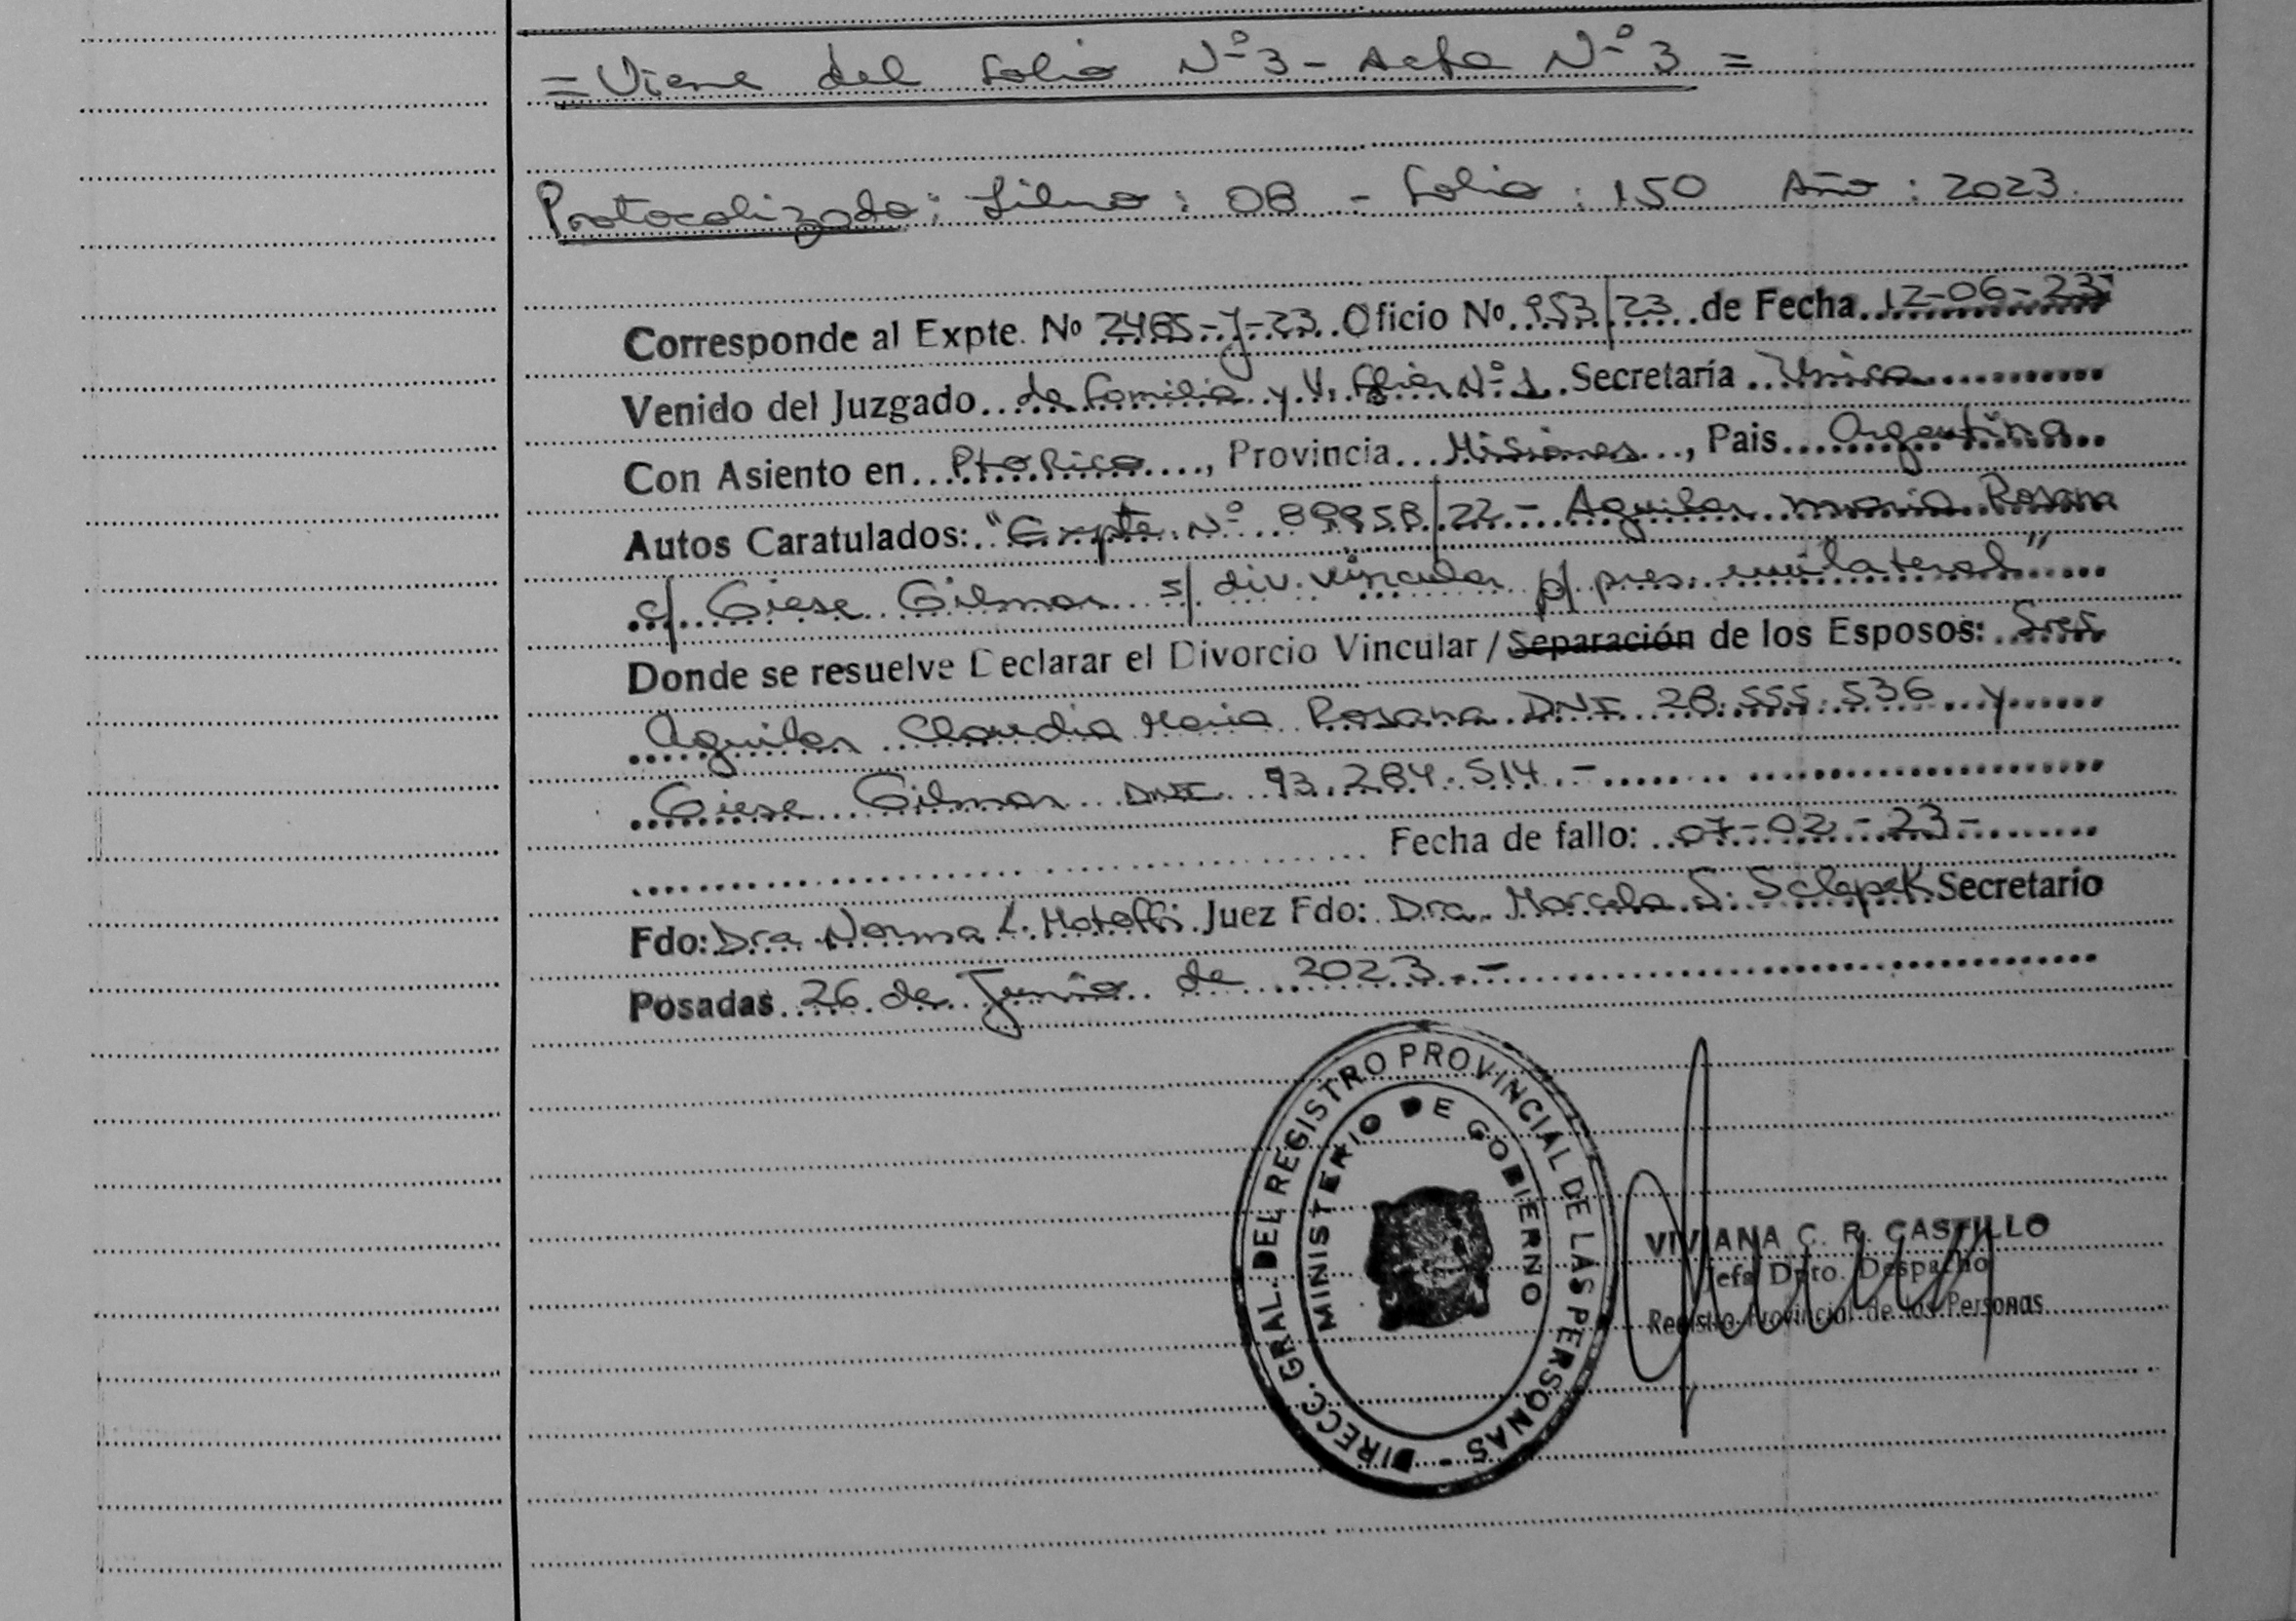 = Viene del folio Nº 3 - Acta Nº 3 =
Protocolizado: Libro: 08 - Folio: 150 Año: 2023.
Corresponde al Expte. Nº 2485-J-23 Oficio Nº 953/23 de Fecha 12-06-23
Venido del Juzgado de Familia y V. Fliar Nº 1 Secretaría Unica
Con Asiento en Pto Rico, Provincia Misiones, Pais Argentina
Autos Caratulados: "Expte Nº 89958/22 - Aguilar Maria Rosana
c/ Giese Gilmar s/ div. vincular p/ pres. unilateral"
Donde se resuelve Declarar el Divorcio Vincular / Separación de los Esposos: Sres
Aguilar Claudia Maria Rosana DNI 28.555.536 y
Giese Gilmar DNI 93.284.514.-
Fecha de fallo: 07-02-23-
Fdo: Dra Norma L. Juez Fdo: Dra. Marcela S. Sclepek Secretario
Posadas 26 de Junio de 2023.-
DIRECC. GRAL. DEL REGISTRO PROVINCIAL DE LAS PERSONAS -
MINISTERIO DE GOBIERNO
VIVIANA C. R. CASTILLO
Jefa Dpto. Despacho
Registro Provincial de las Personas